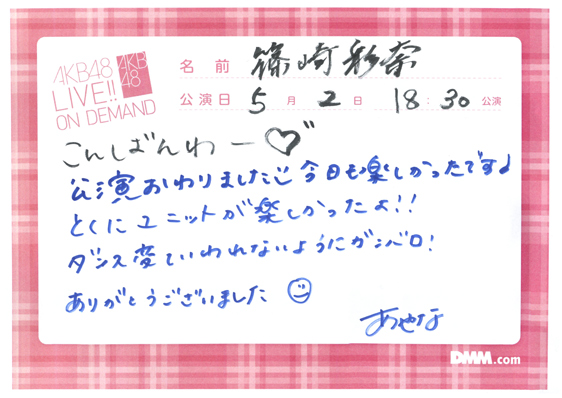 AKB48
LIVE!!
ON DEMAND
AKB
48
名前 篠崎彩奈
公演日 5月2日 18:30公演
こんしばんわー♡"
公演おわりました 今日も楽しかったです♪
とくにユニットが楽しかったよ!!
ダンス変ていわれないようにガンバロ!
ありがとうございました
あやな
DMM.com